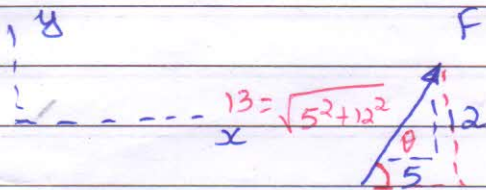 y
F
13 = √5²+12²
x
12
θ
5